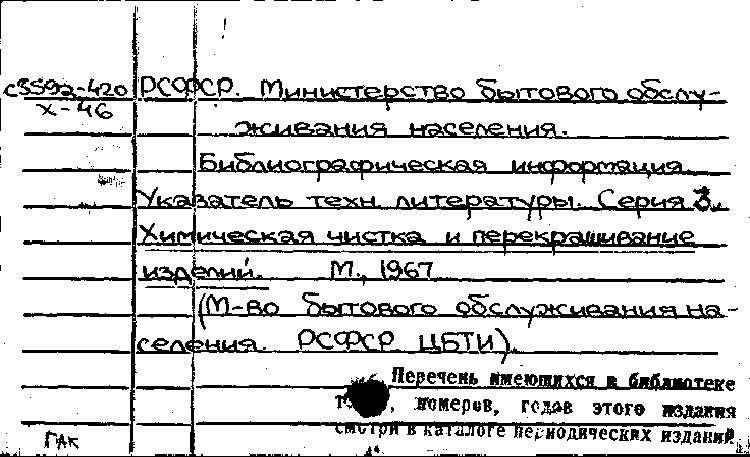 с3592-420 РСФСР. Министерство бытового обслу-
х-46
живания населения.
Библиографическая информация.
Указатель техн. литературы. Серия 3.
Химическая чистка и перекрашивание
изделий. М., 1967
(М-во бытового обслуживания на-
селения. РСФСР. ЦБТИ).
Перечень имеющихся в библиотеке
номеров, годов этого издания
смотри в каталоге периодических изданий
ГАК